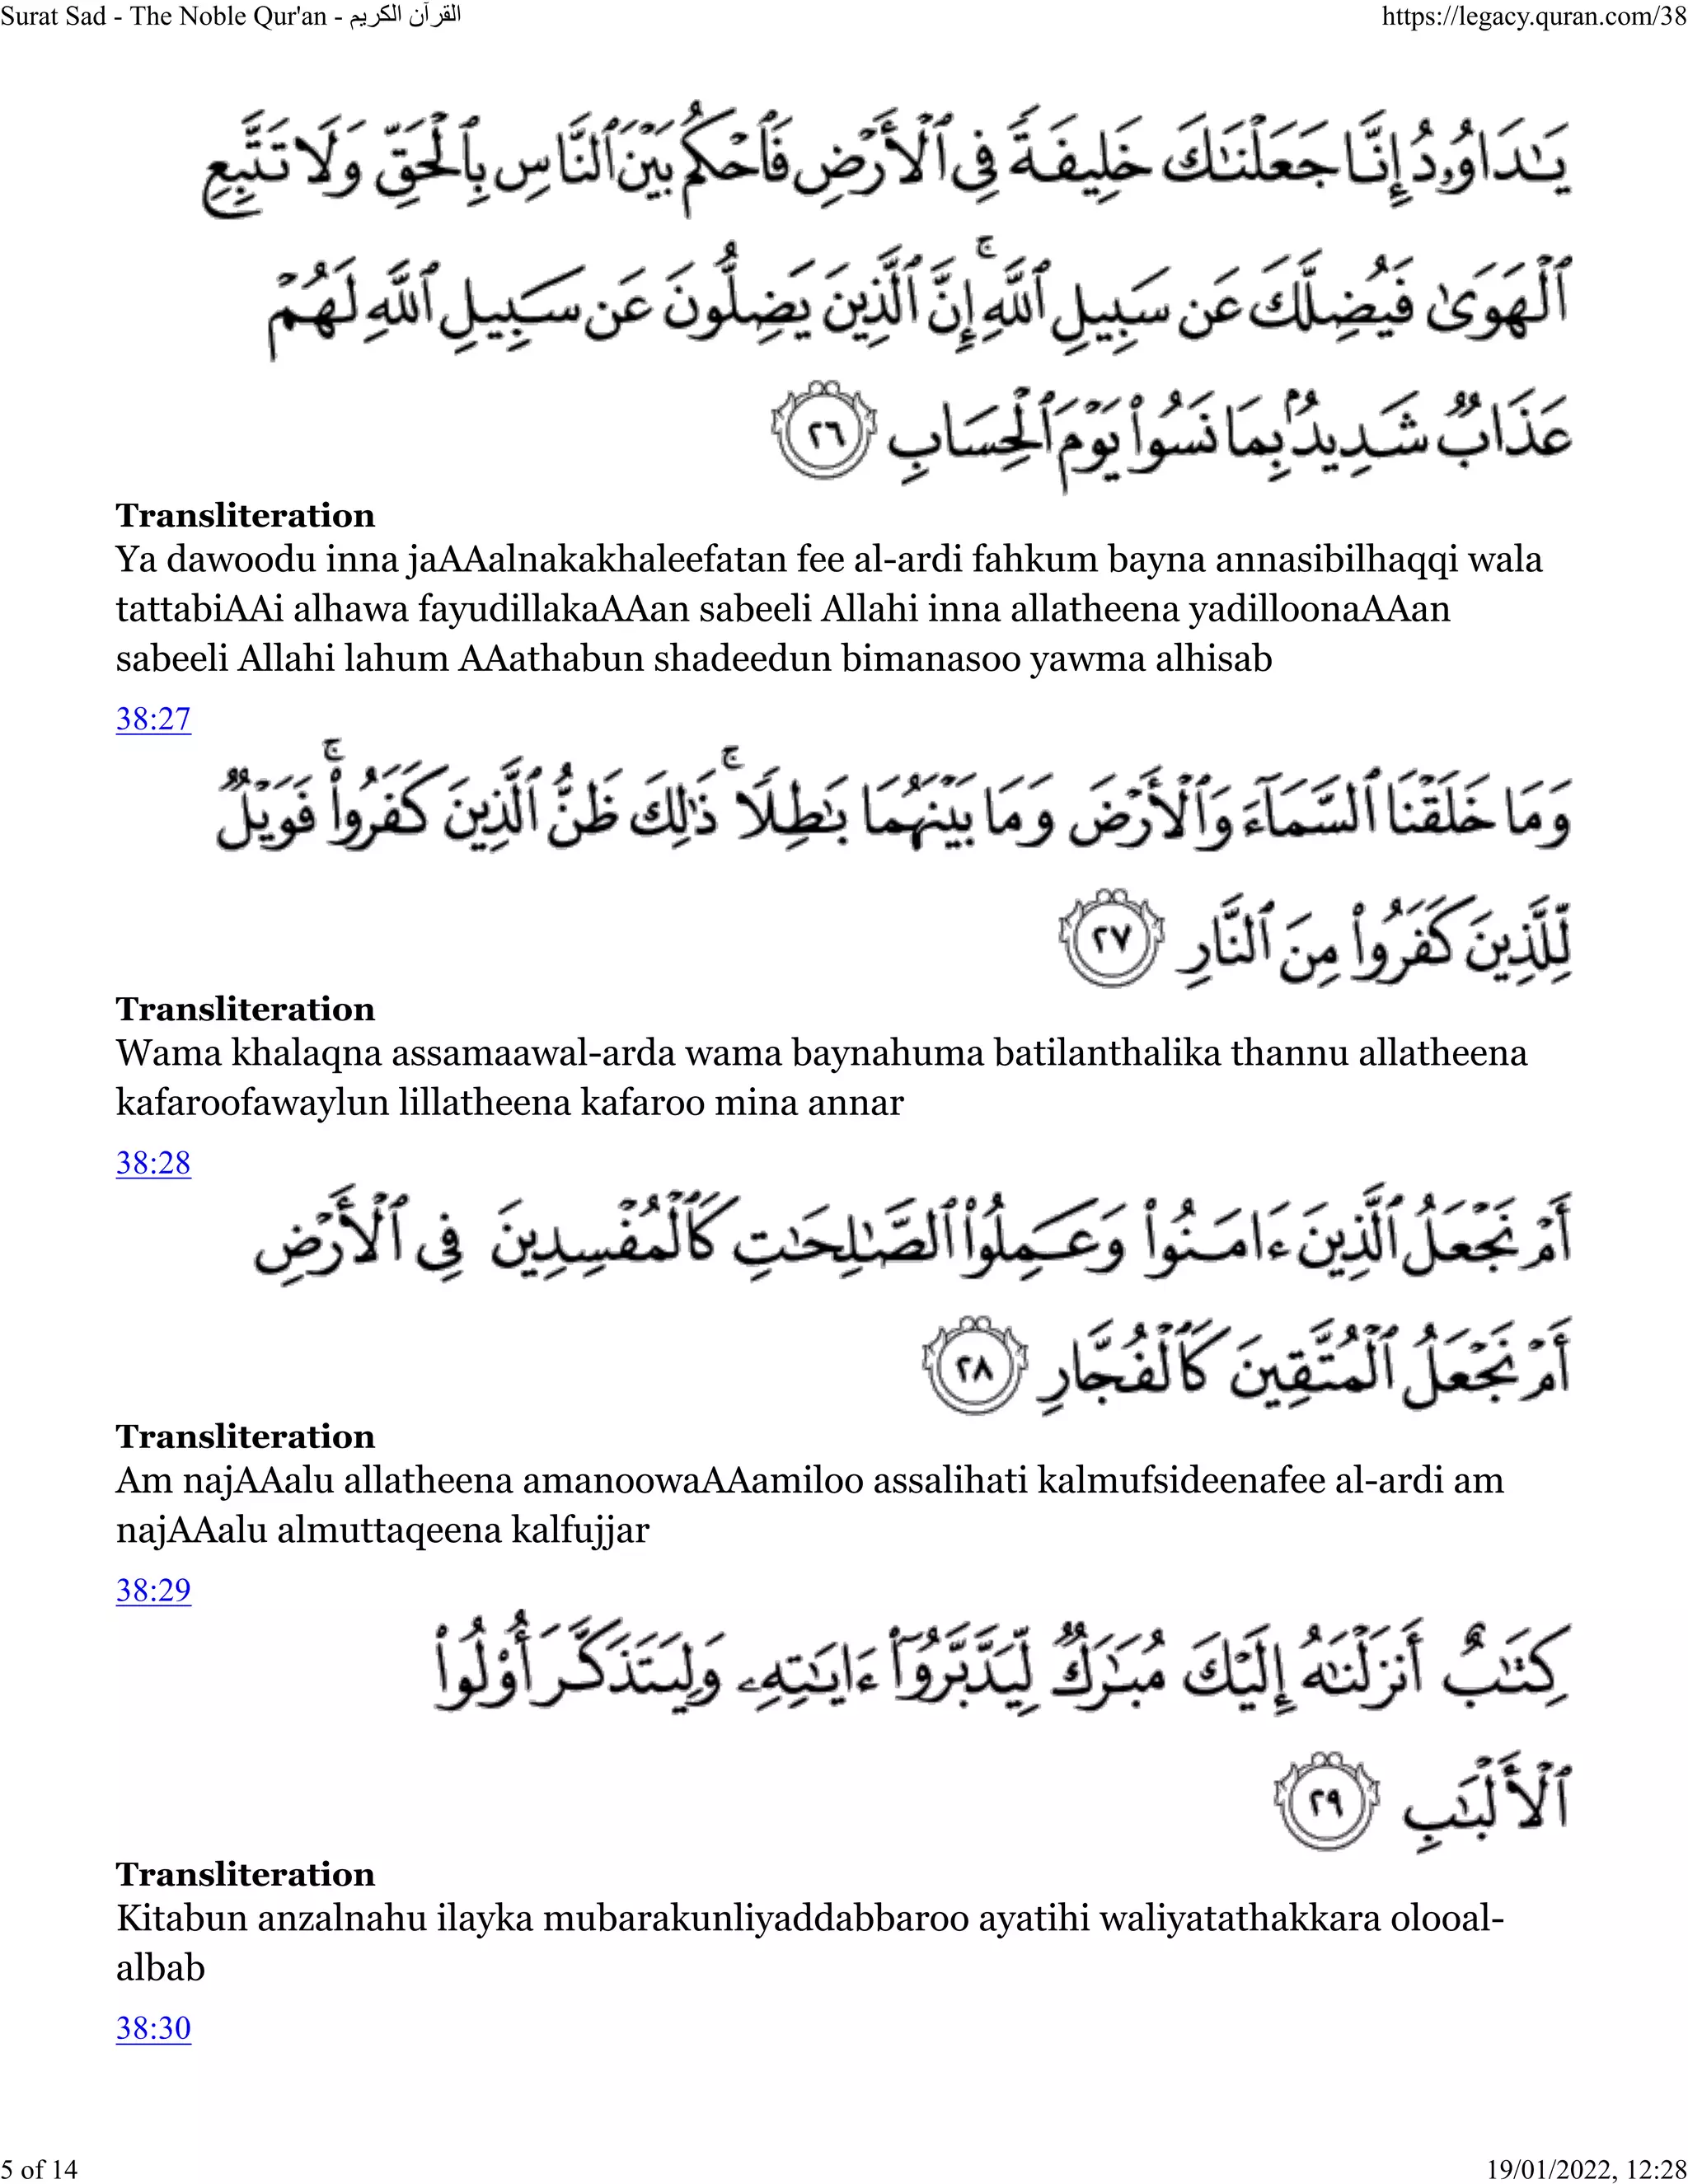 Surat Sad - The Noble Qur'an - القرآن الكريم
https://legacy.quran.com/38
يَـٰدَاوُۥدُ إِنَّا جَعَلْنَـٰكَ خَلِيفَةً فِى ٱلْأَرْضِ فَٱحْكُم بَيْنَ ٱلنَّاسِ بِٱلْحَقِّ وَلَا تَتَّبِعِ
ٱلْهَوَىٰ فَيُضِلَّكَ عَن سَبِيلِ ٱللَّهِ ۚ إِنَّ ٱلَّذِينَ يَضِلُّونَ عَن سَبِيلِ ٱللَّهِ لَهُمْ
عَذَابٌ شَدِيدٌۢ بِمَا نَسُوا۟ يَوْمَ ٱلْحِسَابِ ٢٦
Transliteration
Ya dawoodu inna jaAAalnakakhaleefatan fee al-ardi fahkum bayna annasibilhaqqi wala
tattabiAAi alhawa fayudillakaAAan sabeeli Allahi inna allatheena yadilloonaAAan
sabeeli Allahi lahum AAathabun shadeedun bimanasoo yawma alhisab
38:27
وَمَا خَلَقْنَا ٱلسَّمَآءَ وَٱلْأَرْضَ وَمَا بَيْنَهُمَا بَـٰطِلًا ۚ ذَٰلِكَ ظَنُّ ٱلَّذِينَ كَفَرُوا۟ ۚ فَوَيْلٌ
لِّلَّذِينَ كَفَرُوا۟ مِنَ ٱلنَّارِ ٢٧
Transliteration
Wama khalaqna assamaawal-arda wama baynahuma batilanthalika thannu allatheena
kafaroofawaylun lillatheena kafaroo mina annar
38:28
أَمْ نَجْعَلُ ٱلَّذِينَ ءَامَنُوا۟ وَعَمِلُوا۟ ٱلصَّـٰلِحَـٰتِ كَٱلْمُفْسِدِينَ فِى ٱلْأَرْضِ
أَمْ نَجْعَلُ ٱلْمُتَّقِينَ كَٱلْفُجَّارِ ٢٨
Transliteration
Am najAAalu allatheena amanoowaAAamiloo assalihati kalmufsideenafee al-ardi am
najAAalu almuttaqeena kalfujjar
38:29
كِتَـٰبٌ أَنزَلْنَـٰهُ إِلَيْكَ مُبَـٰرَكٌ لِّيَدَّبَّرُوٓا۟ ءَايَـٰتِهِۦ وَلِيَتَذَكَّرَ أُو۟لُوا۟
ٱلْأَلْبَـٰبِ ٢٩
Transliteration
Kitabun anzalnahu ilayka mubarakunliyaddabbaroo ayatihi waliyatathakkara olooal-
albab
38:30
5 of 14
19/01/2022, 12:28